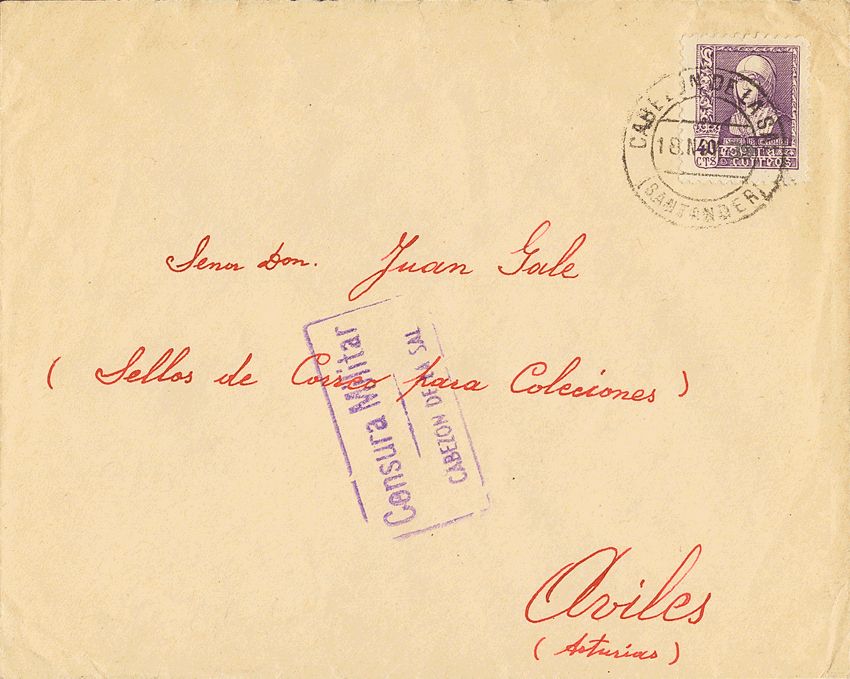 CABEZON DE LA SAL
18 NOV 39
(SANTANDER)
40
CTS
CORREOS
Senor Don. Juan Gale
(Sellos de Correo para Colecciones)
Censura Militar
CABEZON DE LA SAL
Aviles
(Asturias)